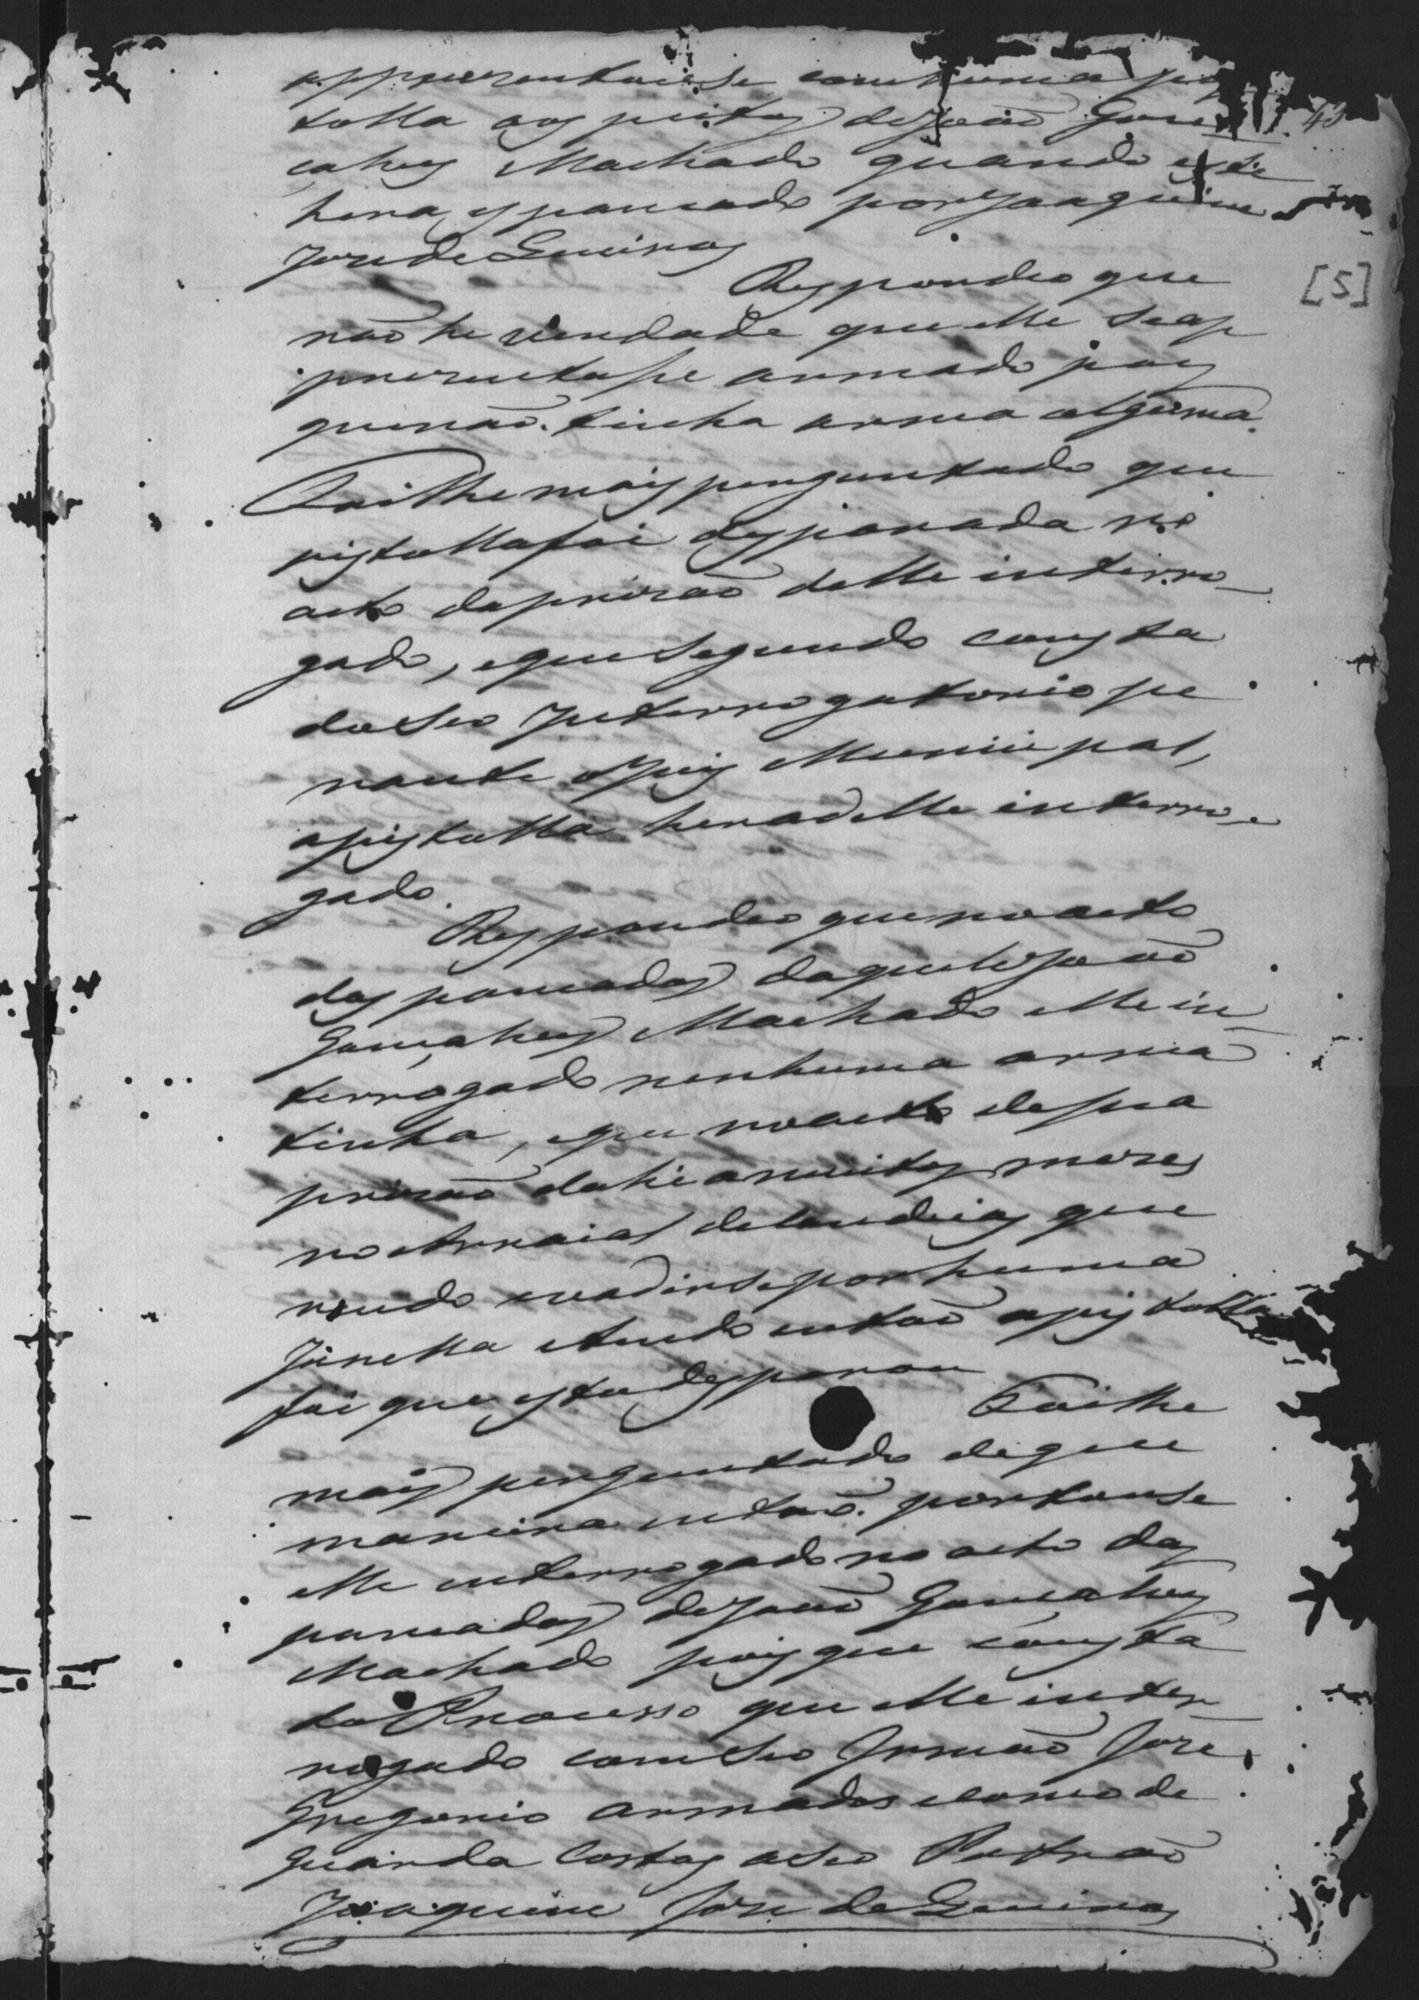 appresentou-se com huma pis
tolla aos peitos de João Gon
calves Machado quando este
hera espancado por Joaquim
José de Queiros
Respondeo que
não he verdade que elle seap
presentasse armado pois
que não tinha arma alguma.
Foi lhe mais perguntado que
pistolla foi disparada no
acto da prisão delle interro
gado, e que segundo consta
do seo Interrogatorio pe
rante o Juis Municipal,
a pistolla hera delle interro
gado.
Respondeo que no acto
das pancadas daquele João
Gonçalves Machado elle in
terrogado nenhuma arma
tinha, e que no acto de sua
prisão dahi a muitos meses
no Arraial de Candeias que
rendo evadirse por huma
Janella tendo então a pistolla
foi que esta disparou
Foi lhe
mais perguntado de que
maneira então portouse
elle interrogado no acto das
pancadas de João Gonçalves
Machado pois que consta
do Processo que elle inter
rogado com seo Irmão José
Gregorio armados como de
guarda Costas a seo Patrão
Joaquim José de Queiros
43
[5]